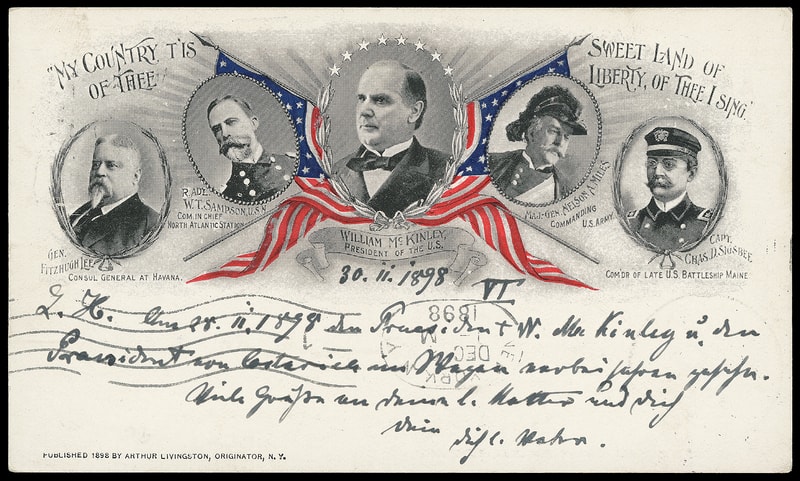 "MY COUNTRY T'IS
OF THEE
SWEET LAND OF
LIBERTY, OF THEE I SING."
GEN.
FITZHUGH LEE
CONSUL GENERAL AT HAVANA.
R. ADL.
W.T. SAMPSON, U.S.N.
COM. IN CHIEF
NORTH ATLANTIC STATION
WILLIAM McKINLEY,
PRESIDENT OF THE U.S.
MAJ.-GEN. NELSON A. MILES
COMMANDING
U.S. ARMY.
CAPT.
CHAS. D. SIGSBEE
COM'D'R OF LATE U.S. BATTLESHIP MAINE
30. II. 1898 VI
L. H. Am 28. II. 1898 den Praesident W. Mc Kinley u. den
Praesident von Costarica im Wagen vorbei fahren gesehn.
Viele Grüße an deine l. Mutter und dich
Dein Vater.
YORK
DEC
1898
PUBLISHED 1898 BY ARTHUR LIVINGSTON, ORIGINATOR, N.Y.